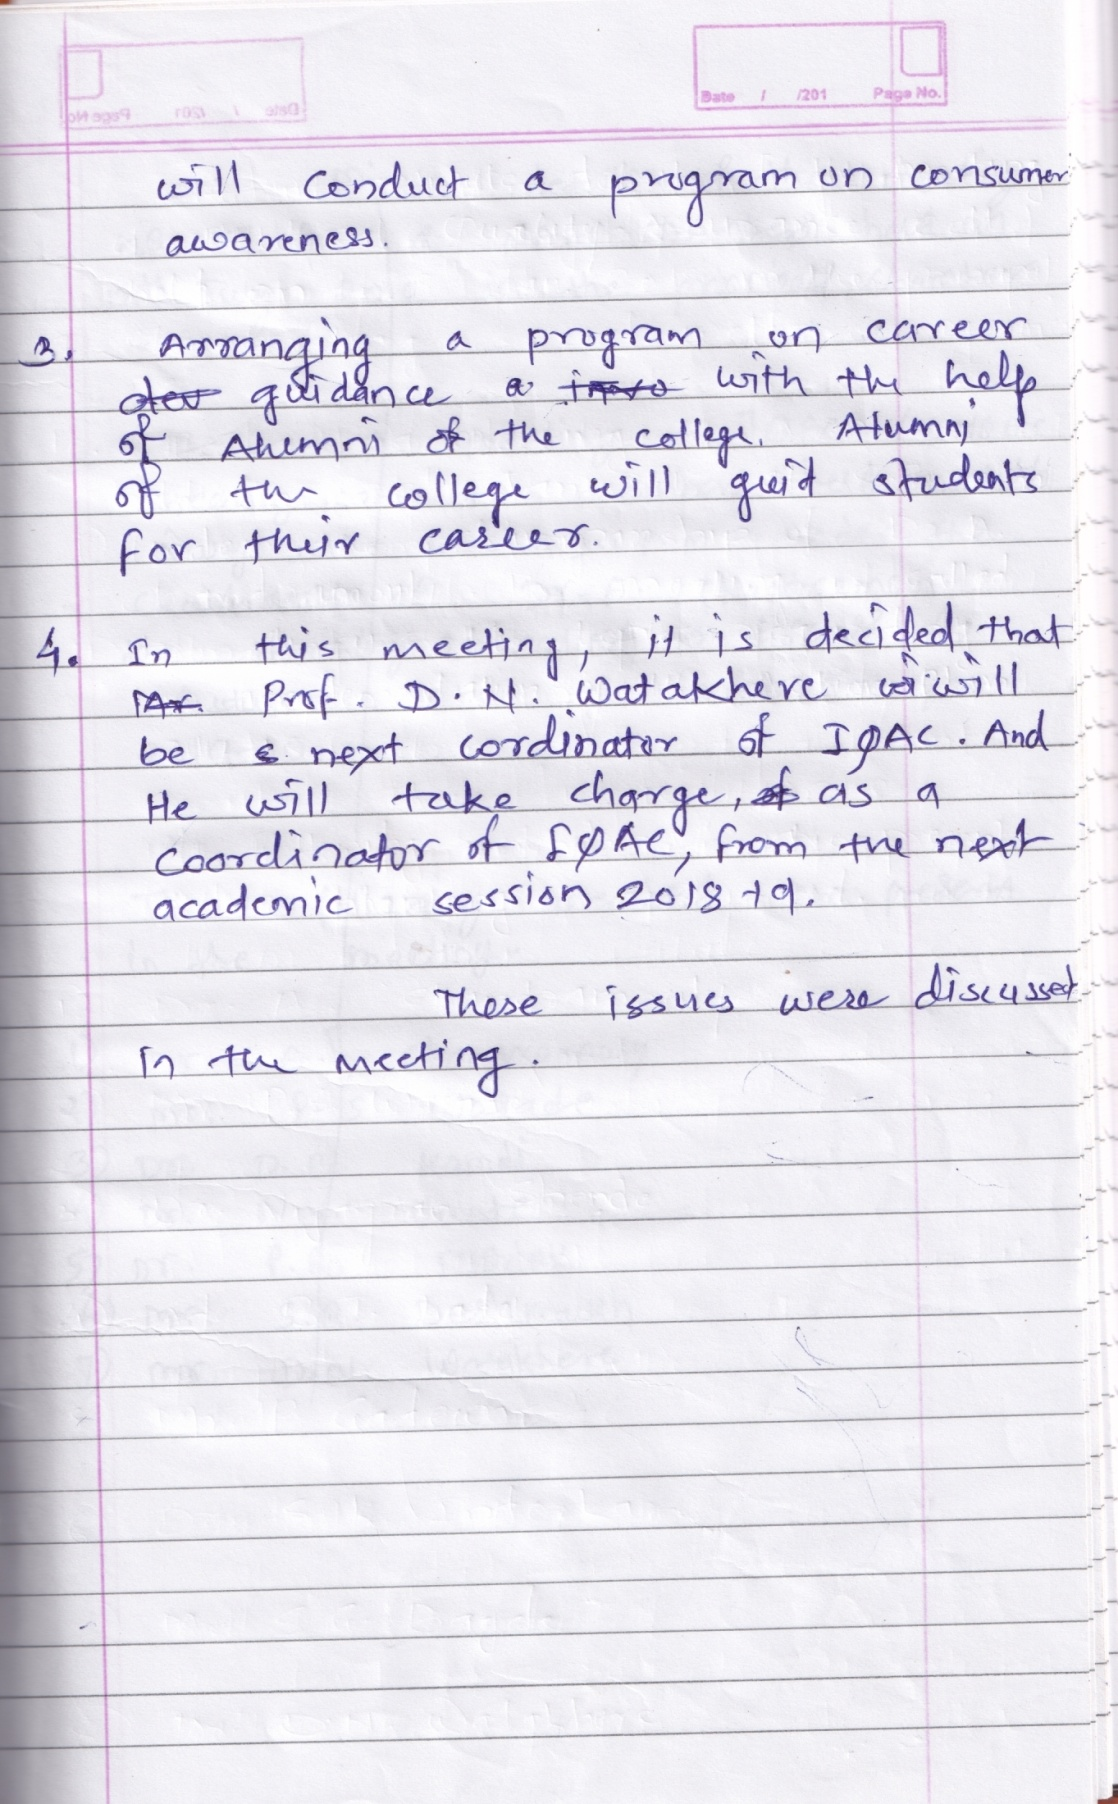 Date / /201 Page No.
will conduct a program on consumer
awareness.
3. Arranging a program on career
guidance a with the help
of Alumni of the college. Alumni
of the college will guid students
for their career.
4. In this meeting, it is decided that
Prof. D. N. Watakhere wi will
be s next cordinator of IQAC. And
He will take charge, as a
coordinator of IQAC, from the next
academic session 2018-19.
These issues were discussed
in the meeting.